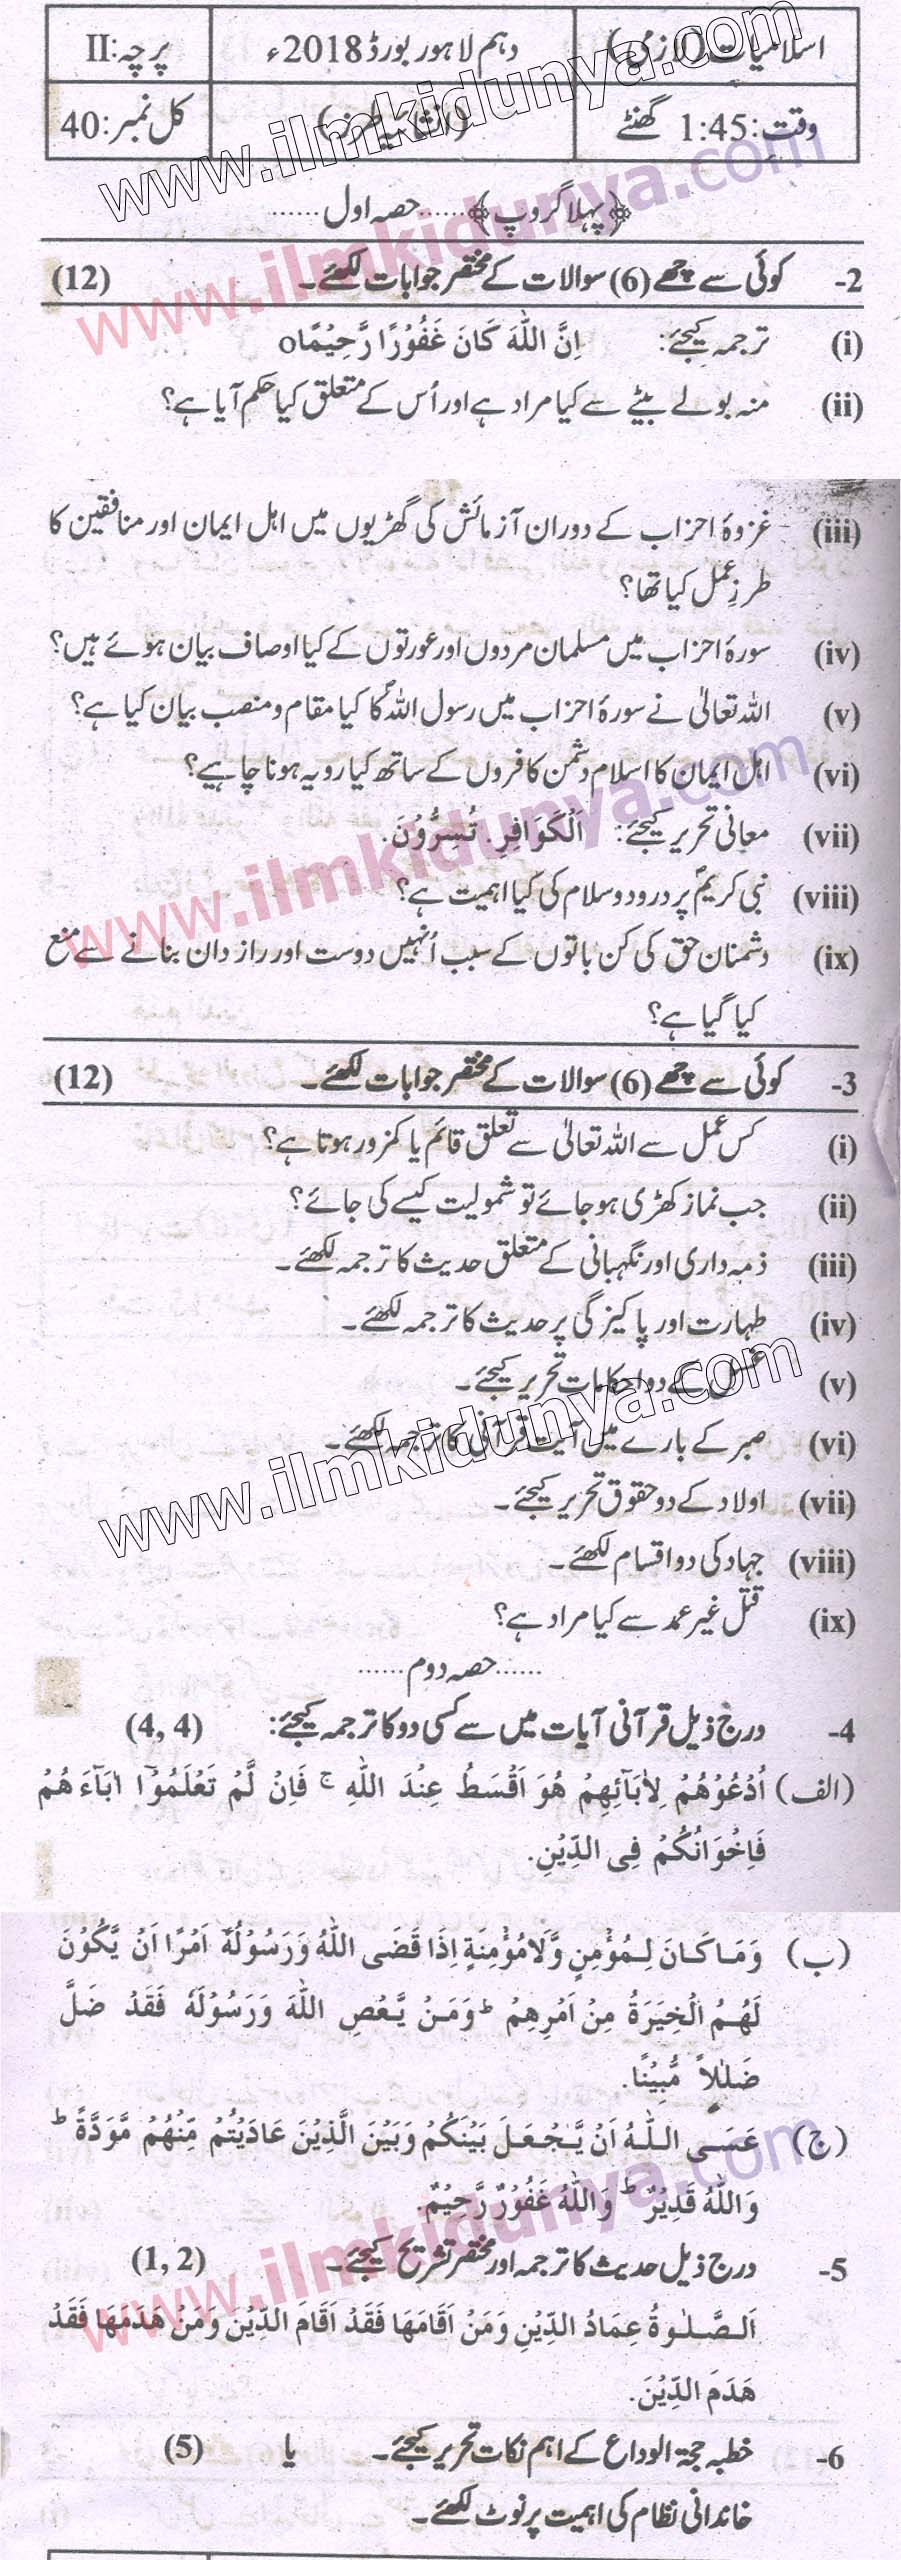 اسلامیات (لازمی) دہم لاہور بورڈ 2018ء پرچہ: II
وقت: 1:45 گھنٹے (انشائیہ طرز) کل نمبر: 40
﴿پہلا گروپ﴾ ...... حصہ اول ......
2- کوئی سے چھے (6) سوالات کے مختصر جوابات لکھئے۔ (12)
(i) ترجمہ کیجئے: اِنَّ اللّٰهَ كَانَ غَفُوْرًا رَّحِيْمًاo
(ii) منہ بولے بیٹے سے کیا مراد ہے اور اُس کے متعلق کیا حکم آیا ہے؟
(iii) غزوۂ احزاب کے دوران آزمائش کی گھڑیوں میں اہل ایمان اور منافقین کا
طرزِ عمل کیا تھا؟
(iv) سورۂ احزاب میں مسلمان مردوں اور عورتوں کے کیا اوصاف بیان ہوئے ہیں؟
(v) اللہ تعالیٰ نے سورۂ احزاب میں رسول اللہؐ کا کیا مقام و منصب بیان کیا ہے؟
(vi) اہل ایمان کا اسلام دشمن کافروں کے ساتھ کیا رویہ ہونا چاہیے؟
(vii) معانی تحریر کیجئے: اَلْكَوَافِرِ. تُسِرُّوْنَ.
(viii) نبی کریمؐ پر درود و سلام کی کیا اہمیت ہے؟
(ix) دشمنان حق کی کن باتوں کے سبب اُنہیں دوست اور راز دان بنانے سے منع
کیا گیا ہے؟
3- کوئی سے چھے (6) سوالات کے مختصر جوابات لکھئے۔ (12)
(i) کس عمل سے اللہ تعالیٰ سے تعلق قائم یا کمزور ہوتا ہے؟
(ii) جب نماز کھڑی ہو جائے تو شمولیت کیسے کی جائے؟
(iii) ذمہ داری اور نگہبانی کے متعلق حدیث کا ترجمہ لکھئے۔
(iv) طہارت اور پاکیزگی پر حدیث کا ترجمہ لکھئے۔
(v) غسل کے دو احکامات تحریر کیجئے۔
(vi) صبر کے بارے میں آیت قرآنی کا ترجمہ لکھئے۔
(vii) اولاد کے دو حقوق تحریر کیجئے۔
(viii) جہاد کی دو اقسام لکھئے۔
(ix) قتل غیر عمد سے کیا مراد ہے؟
...... حصہ دوم ......
4- درج ذیل قرآنی آیات میں سے کسی دو کا ترجمہ کیجئے: (4, 4)
(الف) اُدْعُوْهُمْ لِاٰبَآئِهِمْ هُوَ اَقْسَطُ عِنْدَ اللّٰهِ ۚ فَاِنْ لَّمْ تَعْلَمُوْٓا اٰبَآءَ هُمْ
فَاِخْوَانُكُمْ فِى الدِّيْنِ.
(ب) وَمَا كَانَ لِمُؤْمِنٍ وَّلَا مُؤْمِنَةٍ اِذَا قَضَى اللّٰهُ وَرَسُوْلُهٗٓ اَمْرًا اَنْ يَّكُوْنَ
لَهُمُ الْخِيَرَةُ مِنْ اَمْرِهِمْ ؕ وَمَنْ يَّعْصِ اللّٰهَ وَرَسُوْلَهٗ فَقَدْ ضَلَّ
ضَلٰلاً مُّبِيْنًا.
(ج) عَسَى اللّٰهُ اَنْ يَّجْعَلَ بَيْنَكُمْ وَبَيْنَ الَّذِيْنَ عَادَيْتُمْ مِّنْهُمْ مَّوَدَّةً ؕ
وَاللّٰهُ قَدِيْرٌ ؕ وَاللّٰهُ غَفُوْرٌ رَّحِيْمٌ.
5- درج ذیل حدیث کا ترجمہ اور مختصر تشریح کیجئے۔ (1, 2)
اَلصَّلٰوةُ عِمَادُ الدِّيْنِ وَمَنْ اَقَامَهَا فَقَدْ اَقَامَ الدِّيْنَ وَمَنْ هَدَمَهَا فَقَدْ
هَدَمَ الدِّيْنَ.
6- خطبہ حجۃ الوداع کے اہم نکات تحریر کیجئے۔ یا (5)
خاندانی نظام کی اہمیت پر نوٹ لکھئے۔
www.ilmkidunya.com
www.ilmkidunya.com
www.ilmkidunya.com
www.ilmkidunya.com
www.ilmkidunya.com